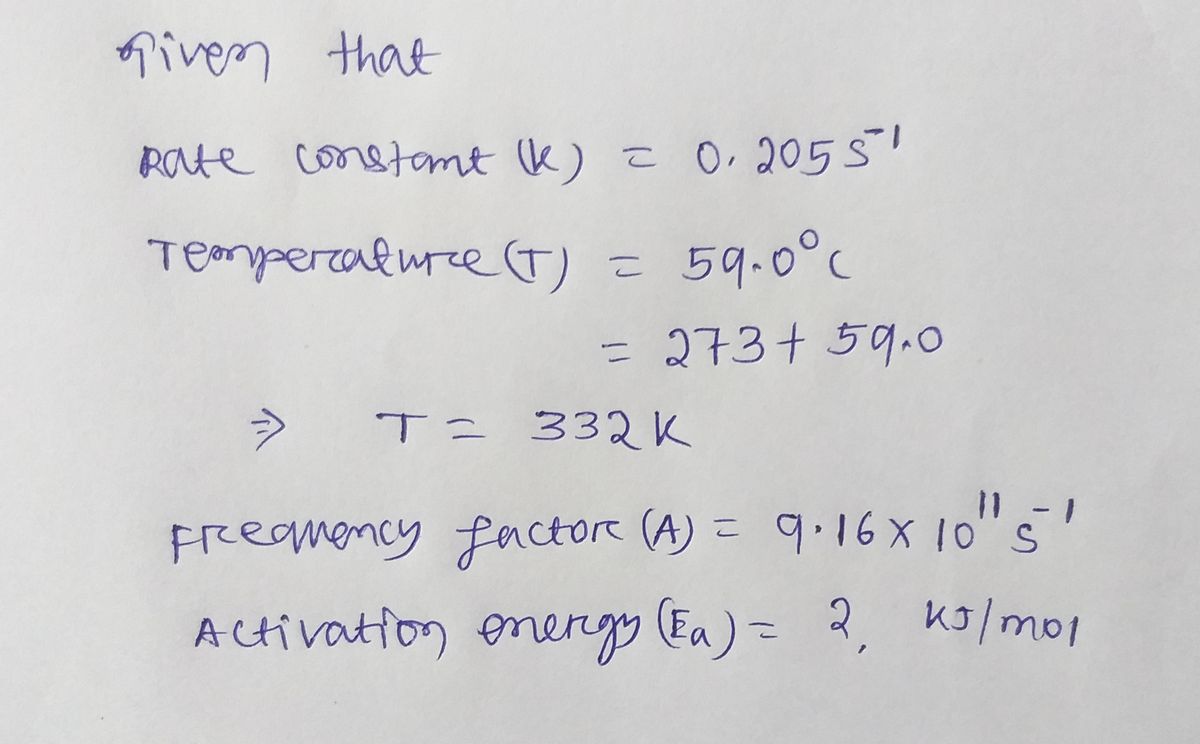 Given that
Rate constant (k) = 0.205 s⁻¹
Temperature (T) = 59.0°C
= 273 + 59.0
⇒ T = 332 K
Frequency factor (A) = 9.16 × 10¹¹ s⁻¹
Activation energy (Ea) = ?, KJ/mol